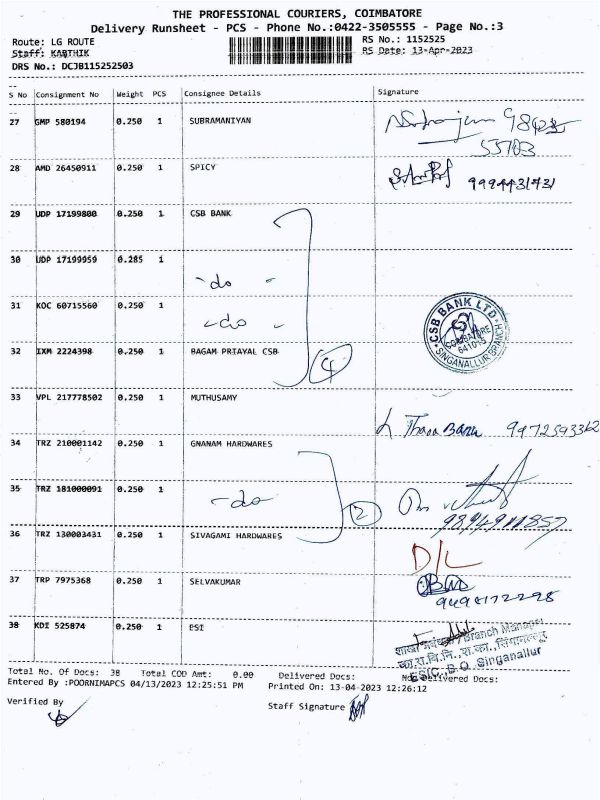 THE PROFESSIONAL COURIERS, COIMBATORE
Delivery Runsheet - PCS - Phone No.:0422-3505555 - Page No.:3
Route: LG ROUTE RS No.: 1152525
Staff: KARTHIK RS Date: 13-Apr-2023
DRS No.: DCJB115252503
S No Consignment No Weight PCS Consignee Details Signature
27 GMP 580194 0.250 1 SUBRAMANIYAN
55703
28 AMD 26450911 0.250 1 SPICY
29 UDP 17199800 0.250 1 CSB BANK
30 UDP 17199959 0.285 1 -do-
31 KOC 60715560 0.250 1 -do-
CSB BANK LTD.
COIMBATORE
641015
SINGANALLUR BRANCH
32 IXM 2224398 0.250 1 BAGAM PRIAYAL CSB 4
33 VPL 217778502 0.250 1 MUTHUSAMY Banu 9972593362
34 TRZ 210001142 0.250 1 GNANAM HARDWARES
35 TRZ 181000091 0.250 1 -do- 2
36 TRZ 130003431 0.250 1 SIVAGAMI HARDWARES D/L
37 TRP 7975368 0.250 1 SELVAKUMAR
9498172298
38 KDI 525874 0.250 1 ESI
शाखा प्रबंधक/Branch Manager
का.रा.बि.नि., शा.का., सिंगानल्लूर
ESIC, B.O. Singanallur
Total No. Of Docs: 38 Total COD Amt: 0.00 Delivered Docs: Not Delivered Docs:
Entered By :POORNIMAPCS 04/13/2023 12:25:51 PM Printed On: 13-04-2023 12:26:12
Verified By Staff Signature